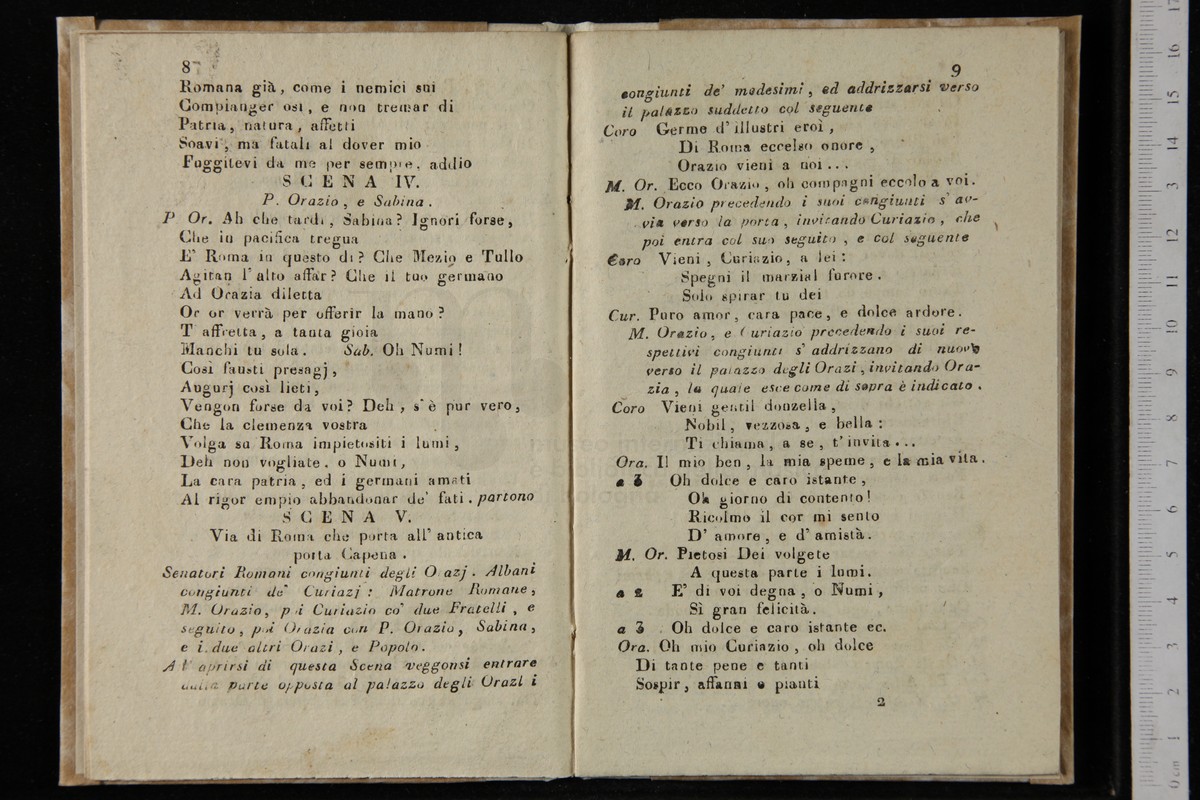 8
Romana già, come i nemici sui
Compianger osi, e non tremar di
Patria, natura, affetti
Soavi, ma fatali al dover mio
Fuggitevi da me per sempre. addio
SCENA IV.
P. Orazio, e Sabina.
P Or. Ah che tardi, Sabina? Ignori forse,
Che in pacifica tregua
E' Roma in questo dì? Che Mezio e Tullo
Agitan l'alto affar? Che il tuo germano
Ad Orazia diletta
Or or verrà per offerir la mano?
T affretta, a tanta gioia
Manchi tu sola. Sab. Oh Numi!
Così fausti presagj,
Augurj così lieti,
Vengon forse da voi? Deh, s'è pur vero,
Che la clemenza vostra
Volga su Roma impietositi i lumi,
Deh non vogliate. o Numi,
La cara patria, ed i germani amati
Al rigor empio abbandonar de' fati. partono
SCENA V.
Via di Roma che porta all' antica
porta Capena.
Senatori Romani congiunti degli Orazj. Albani
congiunti de' Curiazj: Matrone Romane,
M. Orazio, poi Curiazio co' due Fratelli, e
seguito, poi Orazia con P. Orazio, Sabina,
e i due altri Orazi, e Popolo.
All' aprirsi di questa Scena veggonsi entrare
dalla parte opposta al palazzo degli Orazi i
9
congiunti de' medesimi, ed addrizzarsi verso
il palazzo suddetto col seguente
Coro Germe d'illustri eroi,
Di Roma eccelso onore,
Orazio vieni a noi...
M. Or. Ecco Orazio, oh compagni eccolo a voi.
M. Orazio precedendo i suoi congiunti s' av-
via verso la porta, invitando Curiazio, che
poi entra col suo seguito, e col seguente
Coro Vieni, Curiazio, a lei:
Spegni il marzial furore.
Solo spirar tu dei
Cur. Puro amor, cara pace, e dolce ardore.
M. Orazio, e Curiazio precedendo i suoi re-
spettivi congiunti s' addrizzano di nuovo
verso il palazzo degli Orazi, invitando Ora-
zia, la quale esce come di sopra è indicato.
Coro Vieni gentil donzella,
Nobil, vezzosa, e bella:
Ti chiama, a se, t'invita...
Ora. Il mio ben, la mia speme, e la mia vita.
a 3 Oh dolce e caro istante,
Oh giorno di contento!
Ricolmo il cor mi sento
D' amore, e d'amistà.
M. Or. Pietosi Dei volgete
A questa parte i lumi.
a 2 E' di voi degna, o Numi,
Sì gran felicità.
a 3 Oh dolce e caro istante ec.
Ora. Oh mio Curiazio, oh dolce
Di tante pene e tanti
Sospir, affanni e pianti
2